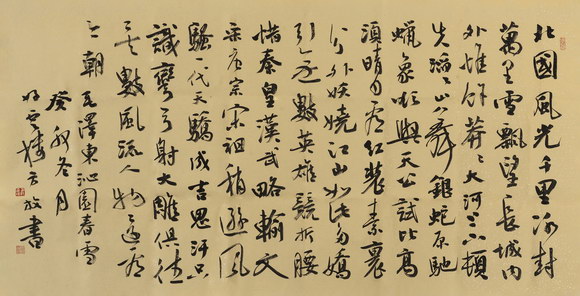 北國風光千里冰封
萬里雪飄望長城內
外惟餘莽〻大河上下頓
失滔〻山舞銀蛇原馳
蠟象欲與天公試比高
須晴日看紅裝素裹
分外妖嬈江山如此多嬌
引無數英雄競折腰
惜秦皇漢武略輸文
采唐宗宋祖稍遜風
騷一代天驕成吉思汗只
識彎弓射大雕俱往
矣數風流人物還看
今朝 毛澤東沁園春雪
癸卯冬月
樓 書